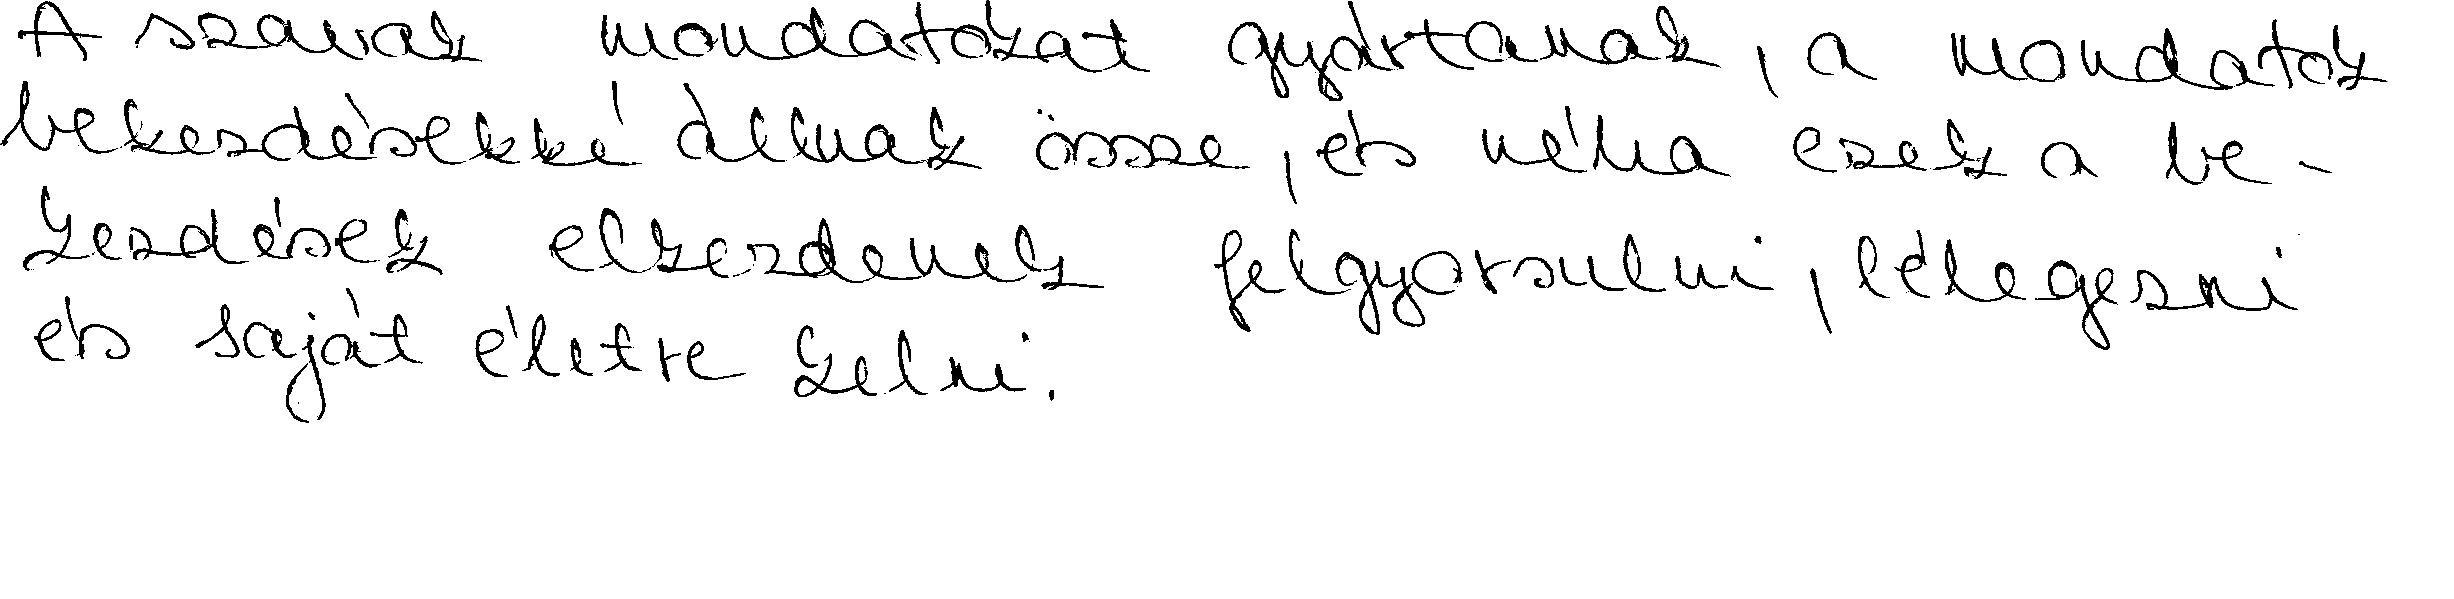 A szavak mondatokat gyártanak, a mondatok
bekezdésekké állnak össze, és néha ezek a be-
kezdések elkezdenek felgyorsulni, lélegezni
és saját életre kelni.